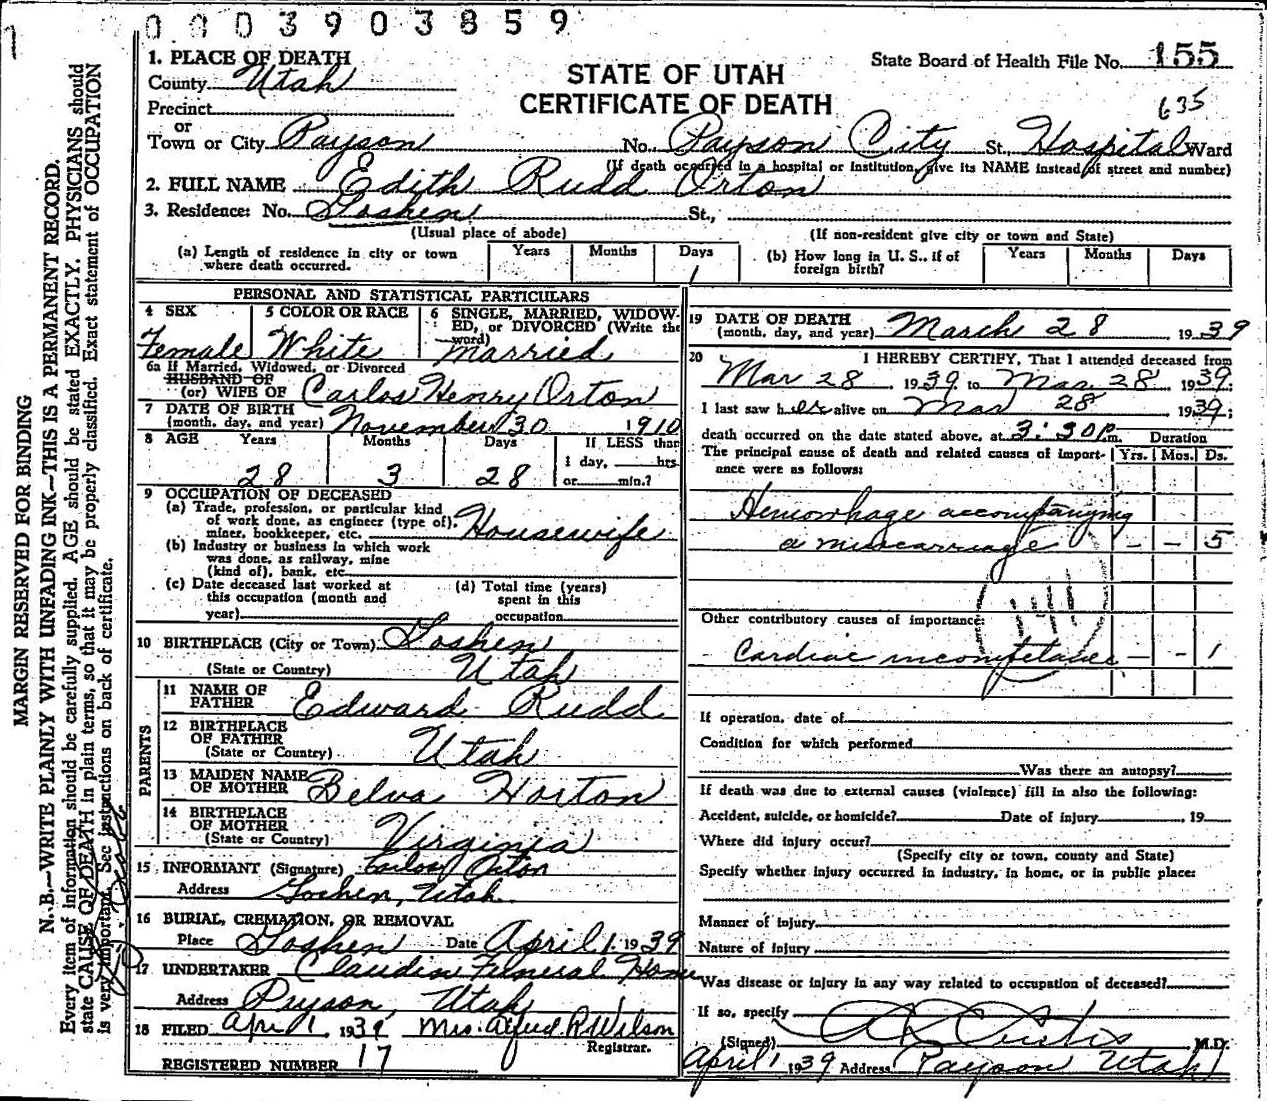 0003903859
1
MARGIN RESERVED FOR BINDING
N. B.—WRITE PLAINLY WITH UNFADING INK—THIS IS A PERMANENT RECORD.
Every item of information should be carefully supplied. AGE should be stated EXACTLY. PHYSICIANS should
state CAUSE OF DEATH in plain terms, so that it may be properly classified. Exact statement of OCCUPATION
is very important. See instructions on back of certificate.
State Board of Health File No. 155
STATE OF UTAH
CERTIFICATE OF DEATH
635
1. PLACE OF DEATH
County Utah
Precinct
or
Town or City Payson No. Payson City St. Hospital Ward
(If death occurred in a hospital or institution, give its NAME instead of street and number)
2. FULL NAME Edith Rudd Orton
3. Residence: No. Goshen St.,
(Usual place of abode) (If non-resident give city or town and State)
(a) Length of residence in city or town where death occurred. Years Months Days 1
(b) How long in U. S., if of foreign birth? Years Months Days
PERSONAL AND STATISTICAL PARTICULARS
4 SEX Female
5 COLOR OR RACE White
6 SINGLE, MARRIED, WIDOWED, or DIVORCED (Write the word) Married
6a If Married, Widowed, or Divorced
HUSBAND OF
(or) WIFE OF Carlos Henry Orton
7 DATE OF BIRTH
(month, day, and year) November 30 1910
8 AGE Years Months Days If LESS than
28 3 28 1 day, hrs.
or min.?
9 OCCUPATION OF DECEASED
(a) Trade, profession, or particular kind
of work done, as engineer (type of),
miner, bookkeeper, etc. Housewife
(b) Industry or business in which work
was done, as railway, mine
(kind of), bank, etc.
(c) Date deceased last worked at
this occupation (month and
year)
(d) Total time (years)
spent in this
occupation
10 BIRTHPLACE (City or Town) Goshen
(State or Country) Utah
PARENTS
11 NAME OF FATHER Edward Rudd
12 BIRTHPLACE OF FATHER
(State or Country) Utah
13 MAIDEN NAME OF MOTHER Belva Horton
14 BIRTHPLACE OF MOTHER
(State or Country) Virginia
15 INFORMANT (Signature) Carlos Orton
Address Goshen, Utah
16 BURIAL, CREMATION, OR REMOVAL
Place Goshen Date April 1 1939
17 UNDERTAKER Claudin Funeral Home
Address Payson, Utah
18 FILED April 1 1939 Mrs. Alfred R Wilson
Registrar.
REGISTERED NUMBER 17
19 DATE OF DEATH
(month, day, and year) March 28 1939
20 I HEREBY CERTIFY, That I attended deceased from
Mar 28 1939 to Mar 28 1939;
I last saw her alive on Mar 28 1939;
death occurred on the date stated above, at 3:30 p.m. Duration
The principal cause of death and related causes of importance were as follows: Yrs. Mos. Ds.
Hemorrhage accompanying
a miscarriage – – 5
141
Other contributory causes of importance:
Cardiac incompetance – – 1
If operation, date of
Condition for which performed
Was there an autopsy?
If death was due to external causes (violence) fill in also the following:
Accident, suicide, or homicide? Date of injury , 19
Where did injury occur?
(Specify city or town, county and State)
Specify whether injury occurred in industry, in home, or in public place:
Manner of injury
Nature of injury
Was disease or injury in any way related to occupation of deceased?
If so, specify
(Signed) Curtis M.D.
April 1 1939 Address Payson Utah